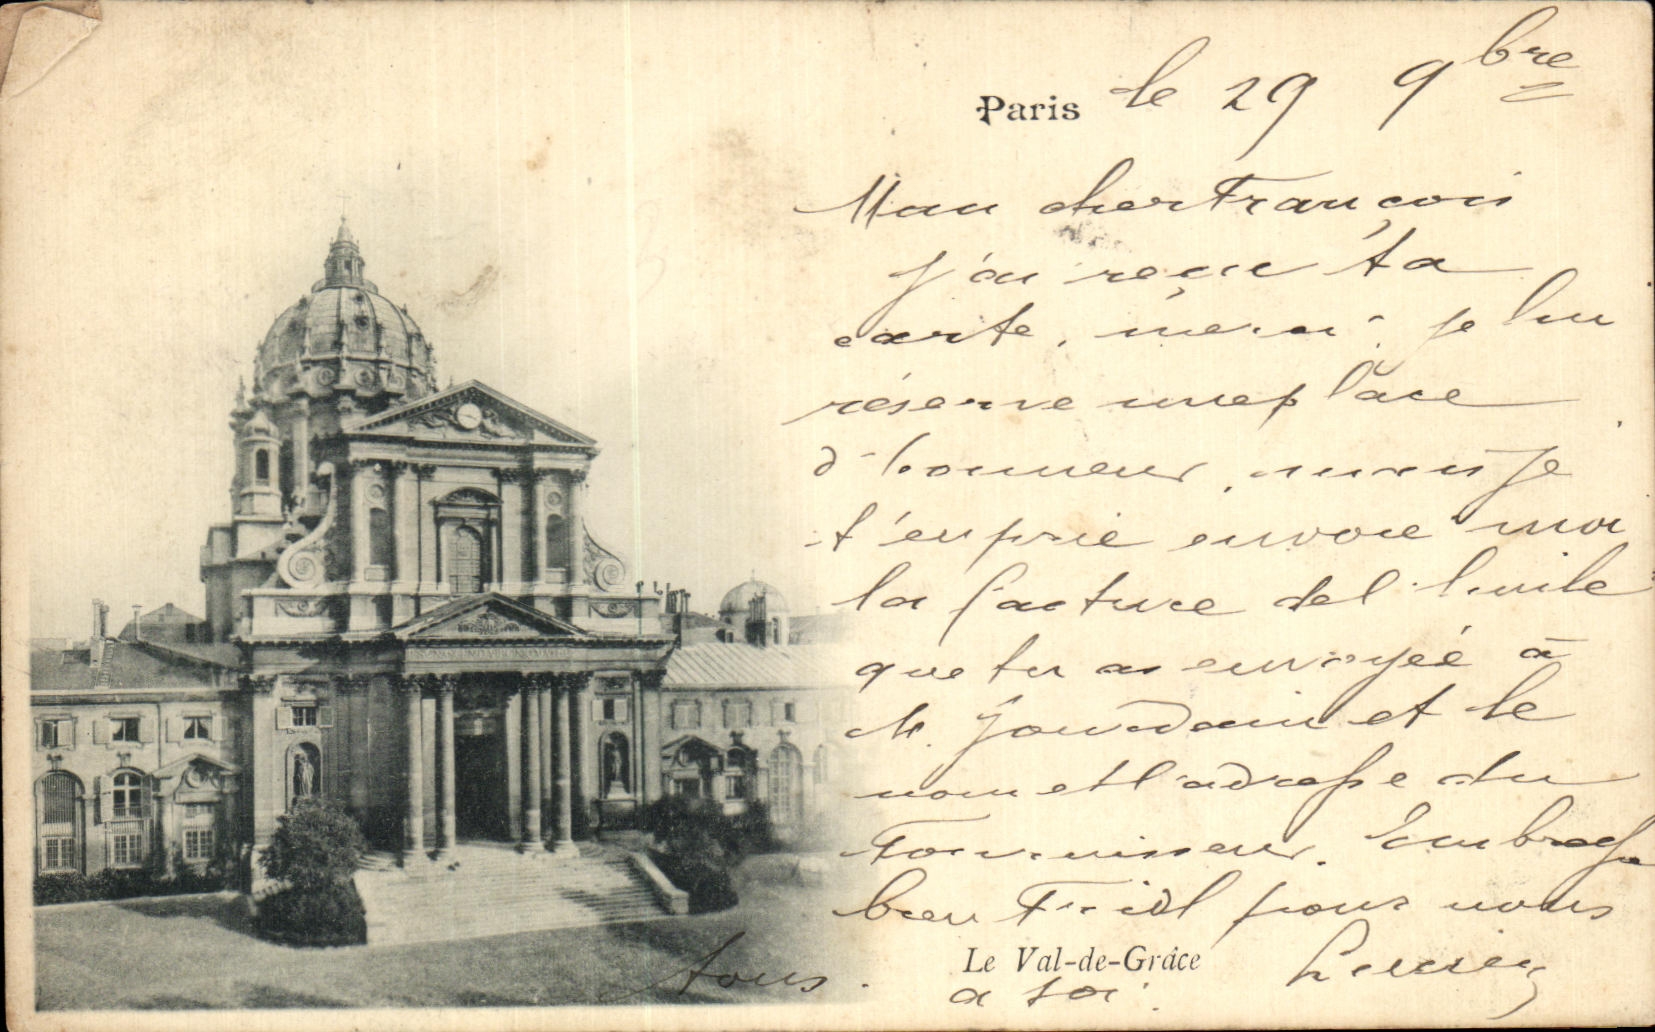 Paris le 29 9bre
Mon cher François
j'ai reçu ta
carte, merci. je lui
réserve une place
d'honneur, mais je
t'en prie envoie moi
la facture de l'huile
que tu as envoyée à
M. Jourdain et le
nom et l'adresse du
Fournisseur. Embrasse
bien pour nous
tous.
Le Val-de-Grâce
a toi.
Lucien